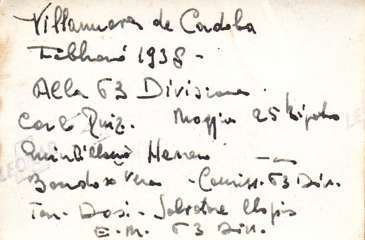 Villanueva de Cordoba
Febbraio 1938 -
Alla 63 Divisione
Carlo Ruiz. Maggiore 25
Quintiliano Herrero
Bondoso Vera - Comiss. 63 Div.
Ten. Dosi - Salvatore Clopis
E.M. 63 Div.